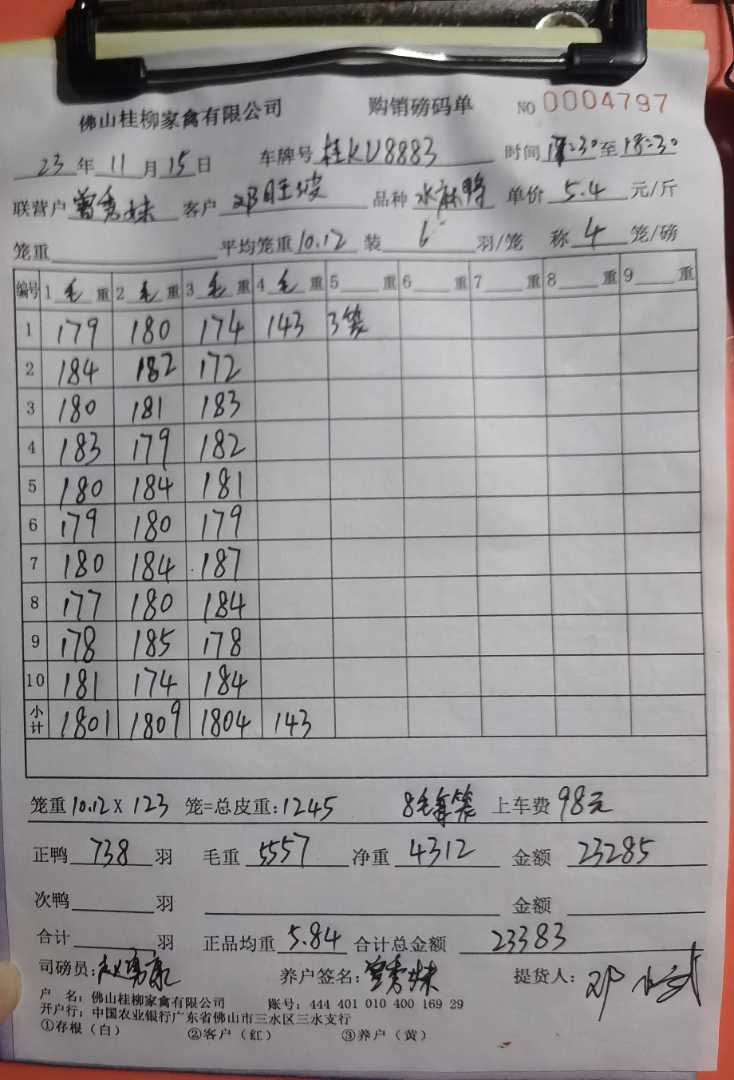 佛山桂柳家禽有限公司 购销磅码单 NO 0004797
23 年 11 月 15 日 车牌号 桂KU8883 时间 18:30 至 18:30
联营户 曾秀妹 客户 邓旺坡 品种 水麻鸭 单价 5.4 元/斤
笼重 平均笼重 10.12 装 6 羽/笼 称 4 笼/磅
编号 1 毛 重 2 毛 重 3 毛 重 4 毛 重 5 重 6 重 7 重 8 重 9 重
1 179 180 174 143 3笼
2 184 182 172
3 180 181 183
4 183 179 182
5 180 184 181
6 179 180 179
7 180 184 187
8 177 180 184
9 178 185 178
10 181 174 184
小计 1801 1809 1804 143
笼重 10.12 X 123 笼=总皮重: 1245 8毛 笼 上车费 98元
正鸭 738 羽 毛重 5557 净重 4312 金额 23285
次鸭 羽 金额
合计 羽 正品均重 5.84 合计总金额 23383
司磅员: 养户签名: 曾秀妹 提货人: 邓
户 名: 佛山桂柳家禽有限公司 账号: 444 401 010 400 169 29
开户行: 中国农业银行广东省佛山市三水区三水支行
①存根(白) ②客户(红) ③养户(黄)